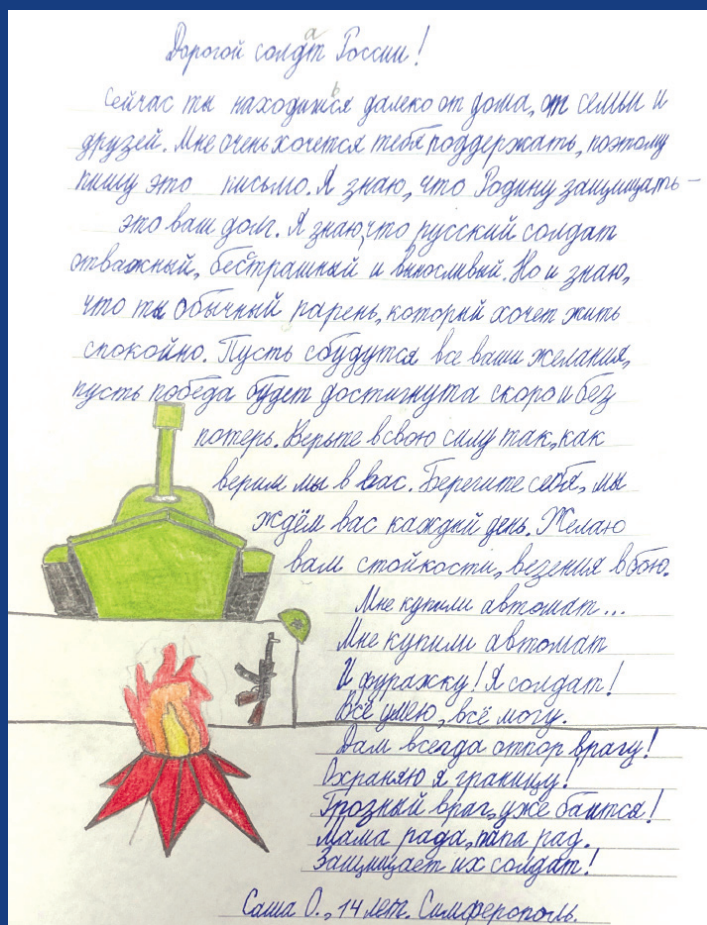 Дорогой солдат России!
Сейчас ты находишься далеко от дома, от семьи и
друзей. Мне очень хочется тебя поддержать, поэтому
пишу это письмо. Я знаю, что Родину защищать –
это ваш долг. Я знаю, что русский солдат
отважный, бесстрашный и выносливый. Но и знаю,
что ты обычный парень, который хочет жить
спокойно. Пусть сбудутся все ваши желания,
пусть победа будет достигнута скоро и без
потерь. Верьте в свою силу так, как
верим мы в вас. Берегите себя, мы
ждём вас каждый день. Желаю
вам стойкости, везения в бою.
Мне купили автомат...
Мне купили автомат
И фуражку! Я солдат!
Всё умею, всё могу.
Дам всегда отпор врагу!
Охраняю я границу!
Грозный враг уже боится!
Мама рада, папа рад.
Защищает их солдат!
Саша О., 14 лет. Симферополь.